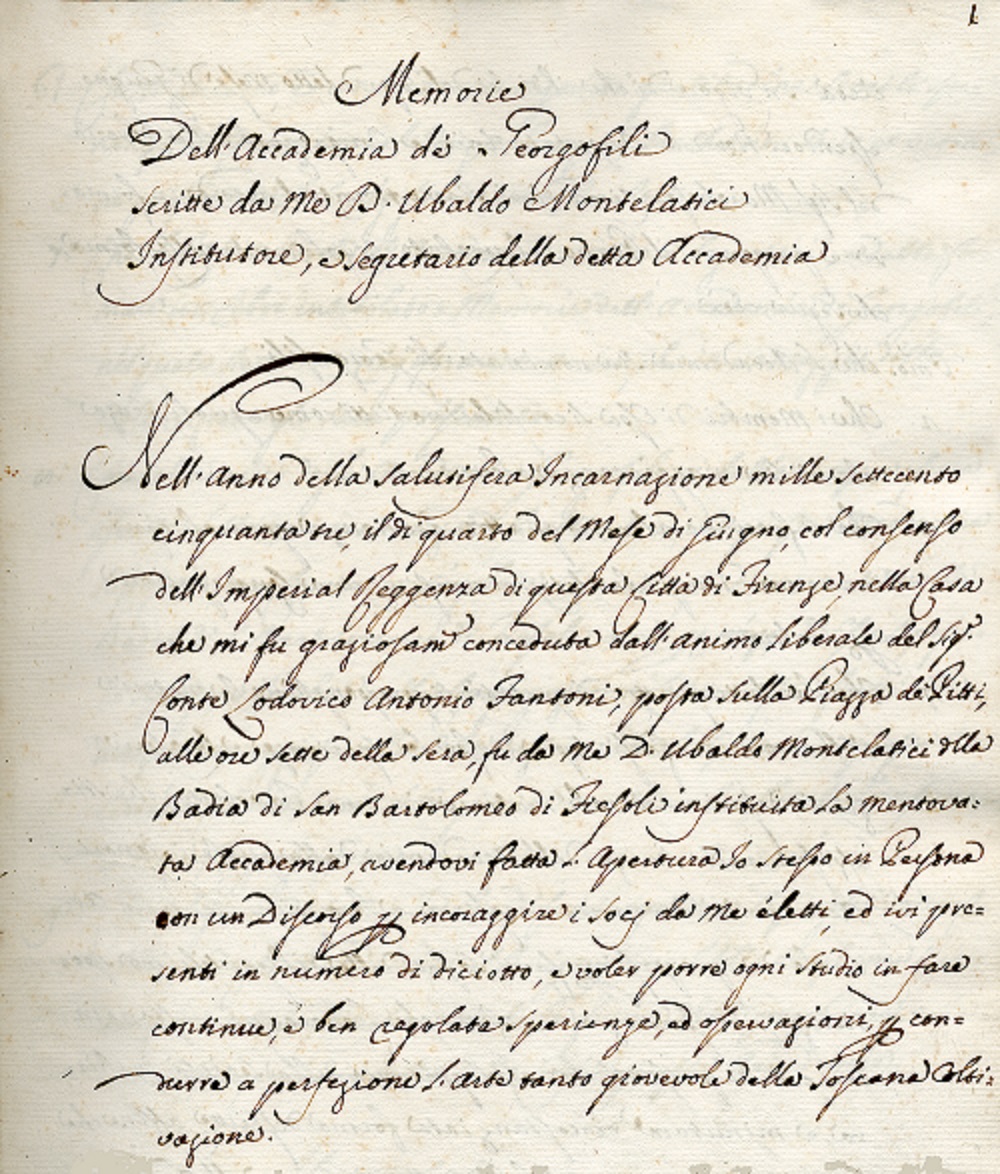 1
Memorie
Dell'Accademia de' Georgofili
scritte da Me D. Ubaldo Montelatici
Institutore, e segretario della detta Accademia
Nell'Anno della salutifera Incarnazione mille settecento
cinquanta tre, il dì quarto del Mese di Giugno, col consenso
dell'Imperial Reggenza di questa Città di Firenze, nella Casa
che mi fu graziosam.e conceduta dall'animo liberale del Sig.r
Conte Lodovico Antonio Fantoni, posta sulla Piazza de' Pitti,
alle ore sette della sera, fu da Me D. Ubaldo Montelatici della
Badia di San Bartolomeo di Fiesoli instituita la mentova=
ta Accademia, avendovi fatta l'Apertura Io stesso in Persona
con un Discorso p incoraggire i socj da Me eletti, ed ivi pre=
senti in numero di diciotto, a voler porre ogni studio in fare
continue, e ben regolate sperienze, ed osservazioni, p con=
durre a perfezione l'Arte tanto giovevole della Toscana Colti=
vazione.